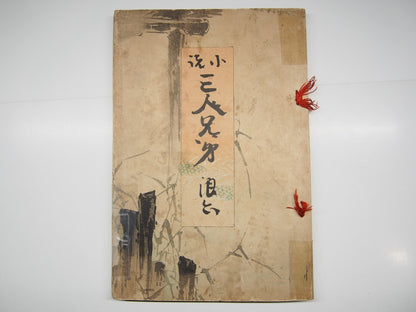 小说
三人兄弟
浪六